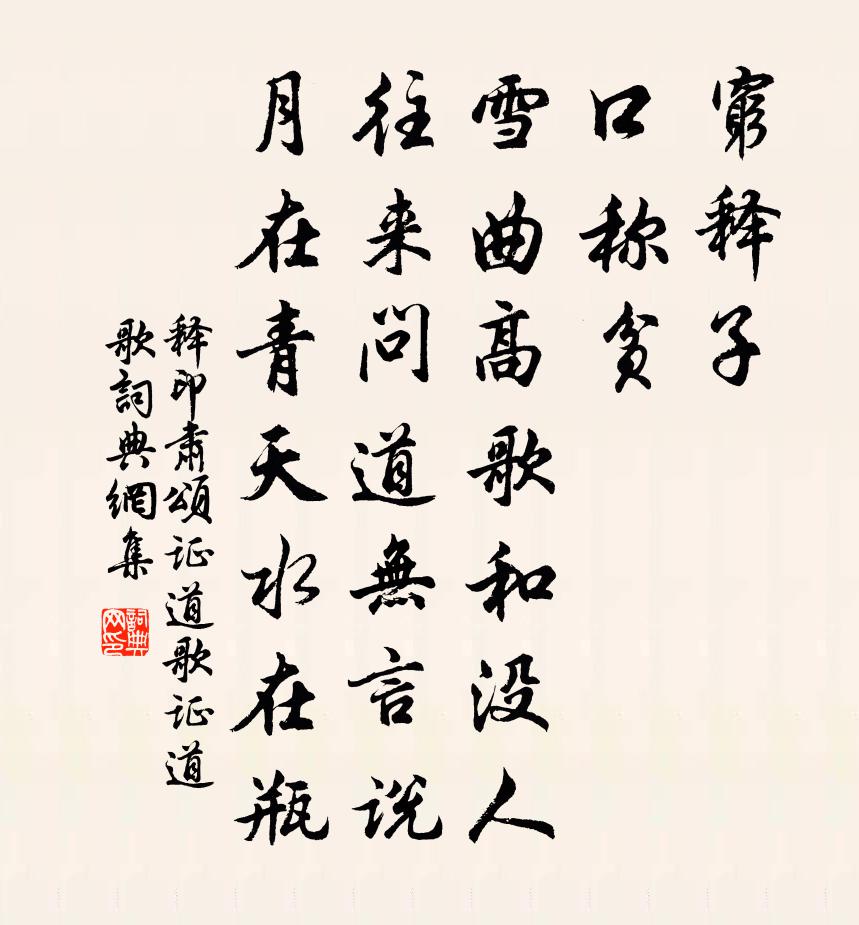 窮释子
口称贫
雪曲高歌和没人
往来问道無言说
月在青天水在瓶
释印肃頌证道歌证道
歌詞典網集
詞典网印